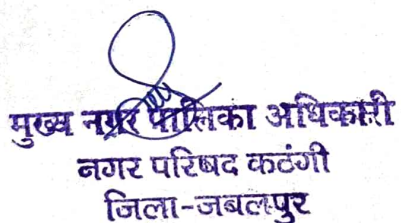 मुख्य नगर पालिका अधिकारी
नगर परिषद कठंगी
जिला-जबलपुर